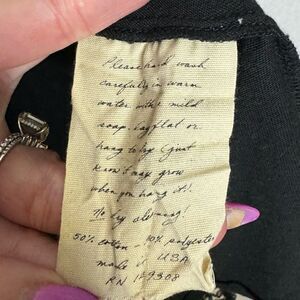 Please hand wash
carefully in warm
water with mild
soap. Lay flat or
hang to dry (Just
know it may grow
when you hang it!!
No dry cleaning!
50% cotton - 10% polyester
made in USA
RN 129308